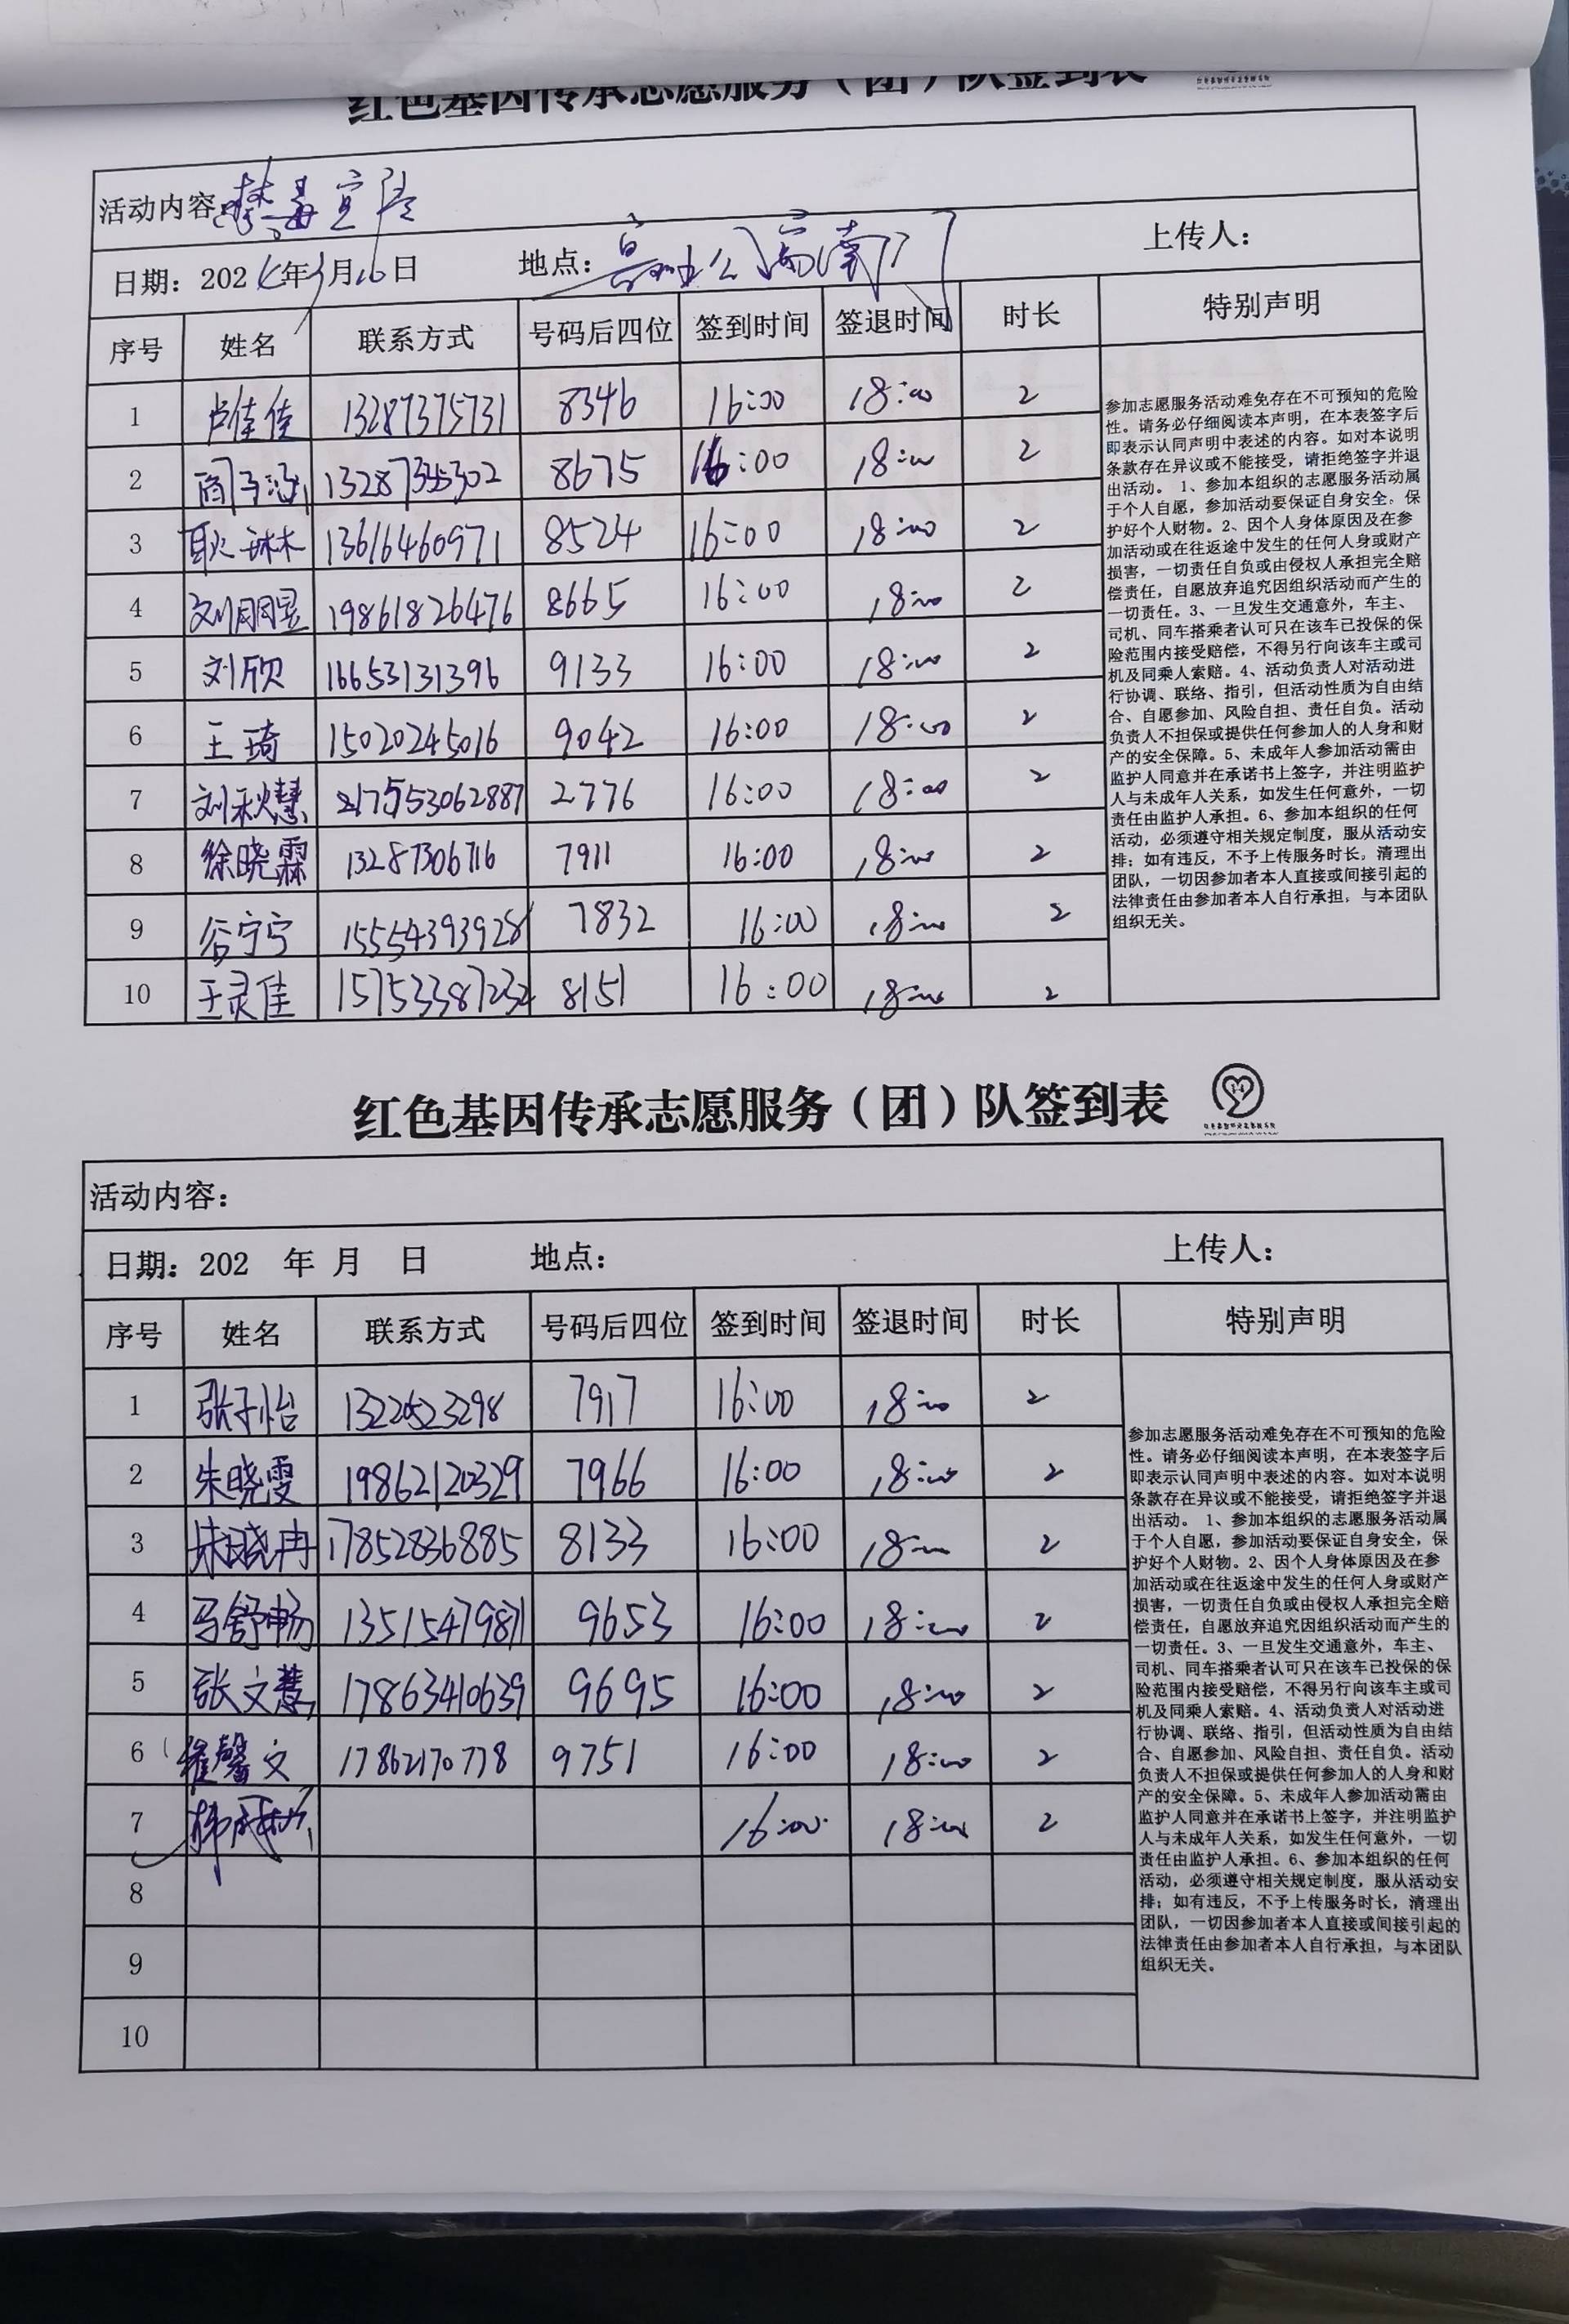 红色基因传承志愿服务（团）队签到表
活动内容: 禁毒宣传
日期: 202 年 月16日 地点: 公寓南门 上传人:
序号 姓名 联系方式 号码后四位 签到时间 签退时间 时长 特别声明
1 卢佳佳 13287375731 8346 16:00 18:00 2
2 13287335302 8675 16:00 18:00 2
3 耿琳木 13616460971 8524 16:00 18:00 2
4 19861826476 8665 16:00 18:00 2
5 刘欣 16653131396 9133 16:00 18:00 2
6 王琦 15020245016 9042 16:00 18:00 2
7 刘秋慧 17553062887 2776 16:00 18:00 2
8 徐晓霖 13287306716 7911 16:00 18:00 2
9 谷宁宁 15554393928 7832 16:00 18:00 2
10 王灵佳 15753387232 8151 16:00 18:00 2
参加志愿服务活动难免存在不可预知的危险
性。请务必仔细阅读本声明，在本表签字后
即表示认同声明中表述的内容。如对本说明
条款存在异议或不能接受，请拒绝签字并退
出活动。 1、参加本组织的志愿服务活动属
于个人自愿，参加活动要保证自身安全，保
护好个人财物。2、因个人身体原因及在参
加活动或在往返途中发生的任何人身或财产
损害，一切责任自负或由侵权人承担完全赔
偿责任，自愿放弃追究因组织活动而产生的
一切责任。3、一旦发生交通意外，车主、
司机、同车搭乘者认可只在该车已投保的保
险范围内接受赔偿，不得另行向该车主或司
机及同乘人索赔。4、活动负责人对活动进
行协调、联络、指引，但活动性质为自由结
合、自愿参加、风险自担、责任自负。活动
负责人不担保或提供任何参加人的人身和财
产的安全保障。5、未成年人参加活动需由
监护人同意并在承诺书上签字，并注明监护
人与未成年人关系，如发生任何意外，一切
责任由监护人承担。6、参加本组织的任何
活动，必须遵守相关规定制度，服从活动安
排；如有违反，不予上传服务时长，清理出
团队，一切因参加者本人直接或间接引起的
法律责任由参加者本人自行承担，与本团队
组织无关。
红色基因传承志愿服务（团）队签到表
活动内容:
日期: 202 年 月 日 地点: 上传人:
序号 姓名 联系方式 号码后四位 签到时间 签退时间 时长 特别声明
1 张子怡 7917 16:00 18:00 2
2 朱晓雯 19862120329 7966 16:00 18:00 2
3 朱晓冉 17852836885 8133 16:00 18:00 2
4 马舒畅 13515479871 9653 16:00 18:00 2
5 张文慧 17863410639 9695 16:00 18:00 2
6 崔馨文 17862170778 9751 16:00 18:00 2
7 16:00 18:00 2
8
9
10
参加志愿服务活动难免存在不可预知的危险
性。请务必仔细阅读本声明，在本表签字后
即表示认同声明中表述的内容。如对本说明
条款存在异议或不能接受，请拒绝签字并退
出活动。 1、参加本组织的志愿服务活动属
于个人自愿，参加活动要保证自身安全，保
护好个人财物。2、因个人身体原因及在参
加活动或在往返途中发生的任何人身或财产
损害，一切责任自负或由侵权人承担完全赔
偿责任，自愿放弃追究因组织活动而产生的
一切责任。3、一旦发生交通意外，车主、
司机、同车搭乘者认可只在该车已投保的保
险范围内接受赔偿，不得另行向该车主或司
机及同乘人索赔。4、活动负责人对活动进
行协调、联络、指引，但活动性质为自由结
合、自愿参加、风险自担、责任自负。活动
负责人不担保或提供任何参加人的人身和财
产的安全保障。5、未成年人参加活动需由
监护人同意并在承诺书上签字，并注明监护
人与未成年人关系，如发生任何意外，一切
责任由监护人承担。6、参加本组织的任何
活动，必须遵守相关规定制度，服从活动安
排；如有违反，不予上传服务时长，清理出
团队，一切因参加者本人直接或间接引起的
法律责任由参加者本人自行承担，与本团队
组织无关。